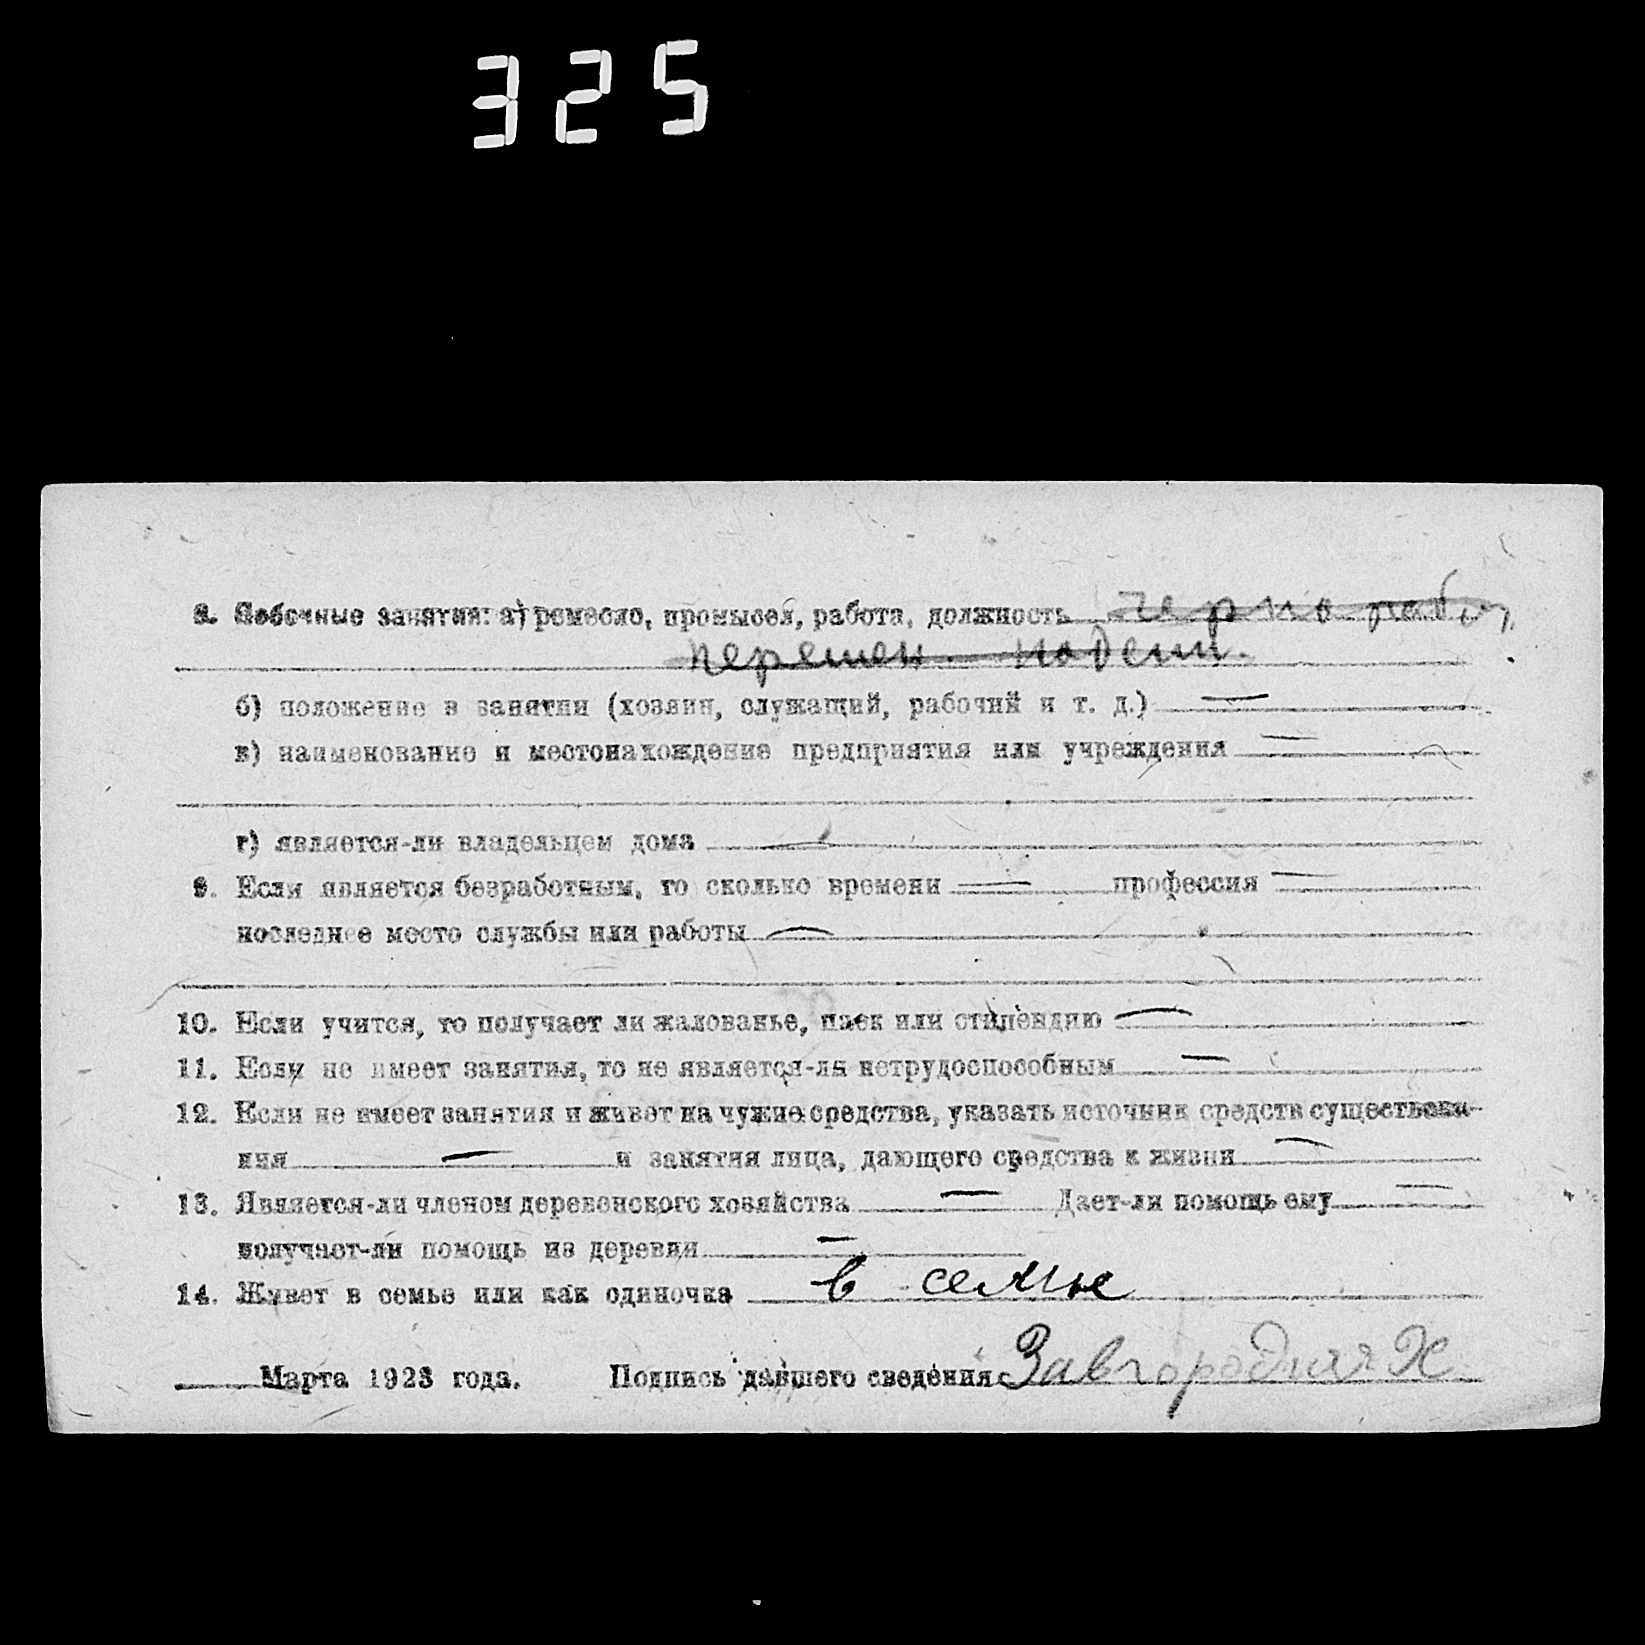 325
8. Побочные занятия: а) ремесло, промысел, работа, должность чернораб
перемен. поденн.
б) положение в занятии (хозяин, служащий, рабочий и т. д.) —
в) наименование и местонахождение предприятия или учреждения —
г) является-ли владельцем дома —
9. Если является безработным, то сколько времени — профессия —
последнее место службы или работы —
10. Если учится, то получает ли жалованье, паек или стипендию —
11. Если не имеет занятия, то не является-ли нетрудоспособным —
12. Если не имеет занятия и живет на чужие средства, указать источник средств существова-
ния — и занятия лица, дающего средства к жизни —
13. Является-ли членом деревенского хозяйства — Дает-ли помощь ему —
получает-ли помощь из деревни —
14. Живет в семье или как одиночка в семье
Марта 1923 года. Подпись давшего сведения Завгородняя Х